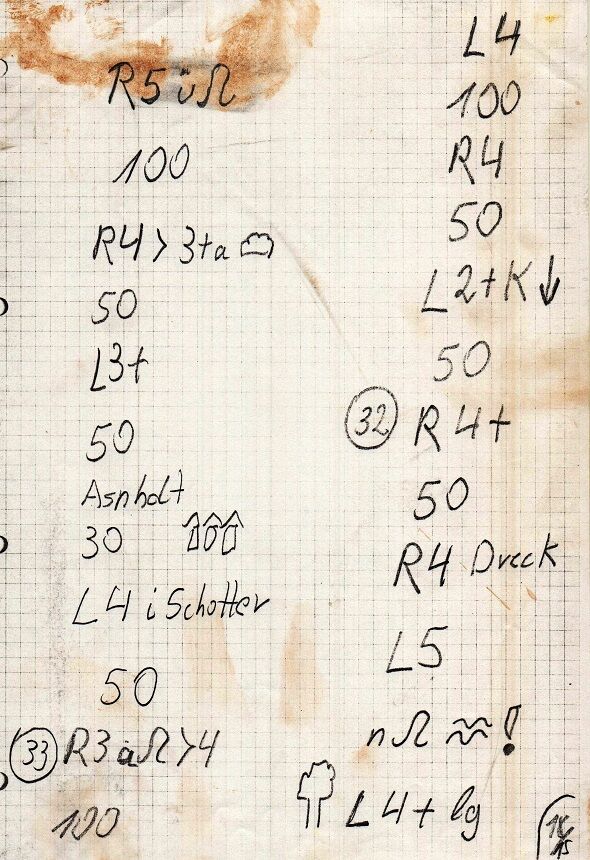 R5 ü Ω
100
R4 > 3+ a
50
L3+
50
Asphalt
30
L4 i Schotter
50
33 R3 a Ω > 4
100
L4
100
R4
50
L2+ K ↓
50
32 R4+
50
R4 Dreck
L5
n Ω ≈ !
L4+ lg